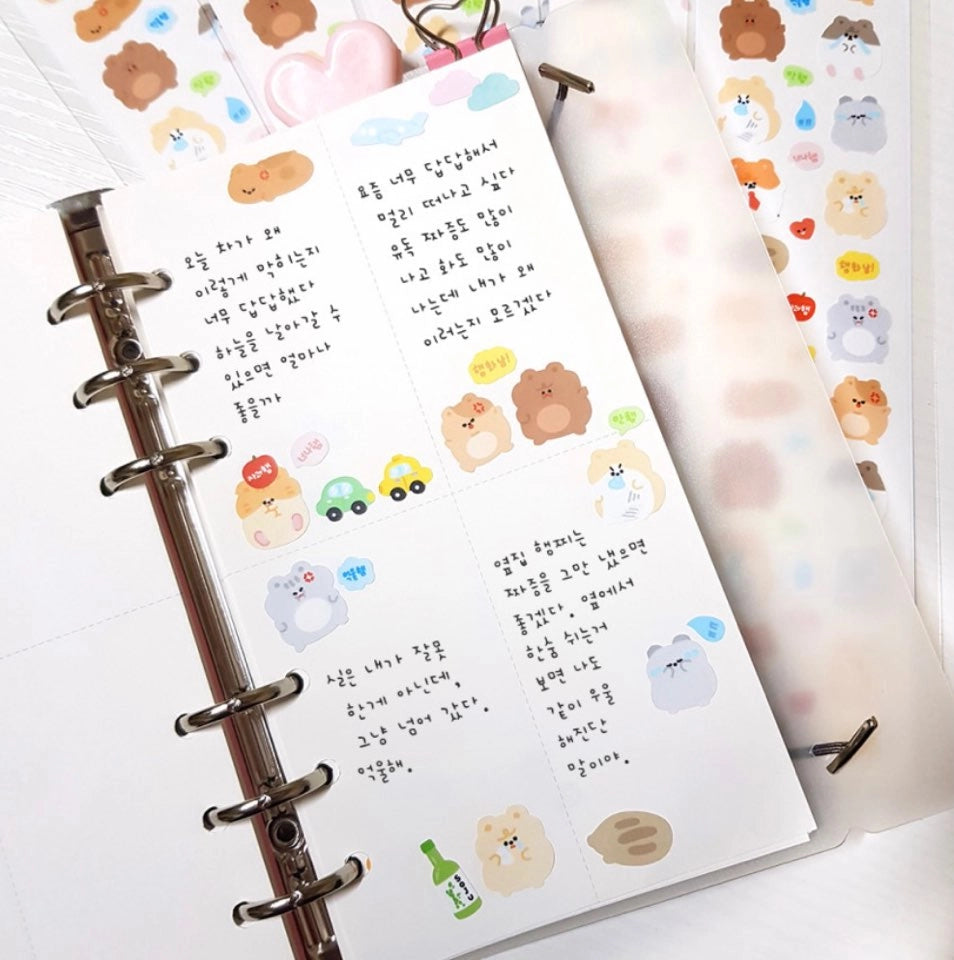 오늘 차가 왜
이렇게 막히는지
너무 답답했다
하늘을 날아갈 수
있으면 얼마나
좋을까
사과햄
너나햄
요즘 너무 답답해서
멀리 떠나고 싶다
유독 짜증도 많이
나고 화도 많이
나는데 내가 왜
이러는지 모르겠다
햄화남!
안햄
억울햄
실은 내가 잘못
한게 아닌데,
그냥 넘어 갔다.
억울해.
SOJU
옆집 햄찌는
짜증을 그만 냈으면
좋겠다. 옆에서
한숨 쉬는거
보면 나도
같이 우울
해진단
말이야.
안햄
너나햄
햄화남!